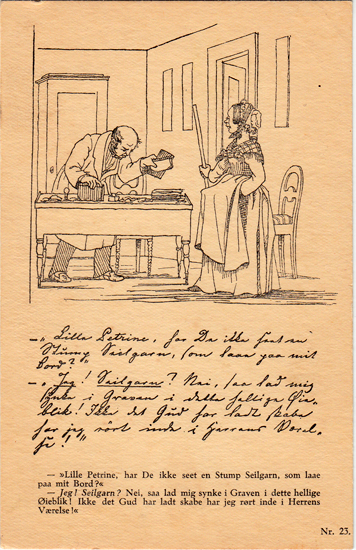 —„Lille Petrine, har De ikke seet en
Stump Seilgarn, som laae paa mit
Bord?"
—„Jeg! Seilgarn? Nei, saa lad mig
synke i Graven i dette hellige Øie-
blik! Ikke det Gud har ladt skabe
har jeg rört inde i Herrens Værel-
se!"
— »Lille Petrine, har De ikke seet en Stump Seilgarn, som laae
paa mit Bord?«
— Jeg! Seilgarn? Nei, saa lad mig synke i Graven i dette hellige
Øieblik! Ikke det Gud har ladt skabe har jeg rørt inde i Herrens
Værelse!«
Nr. 23.